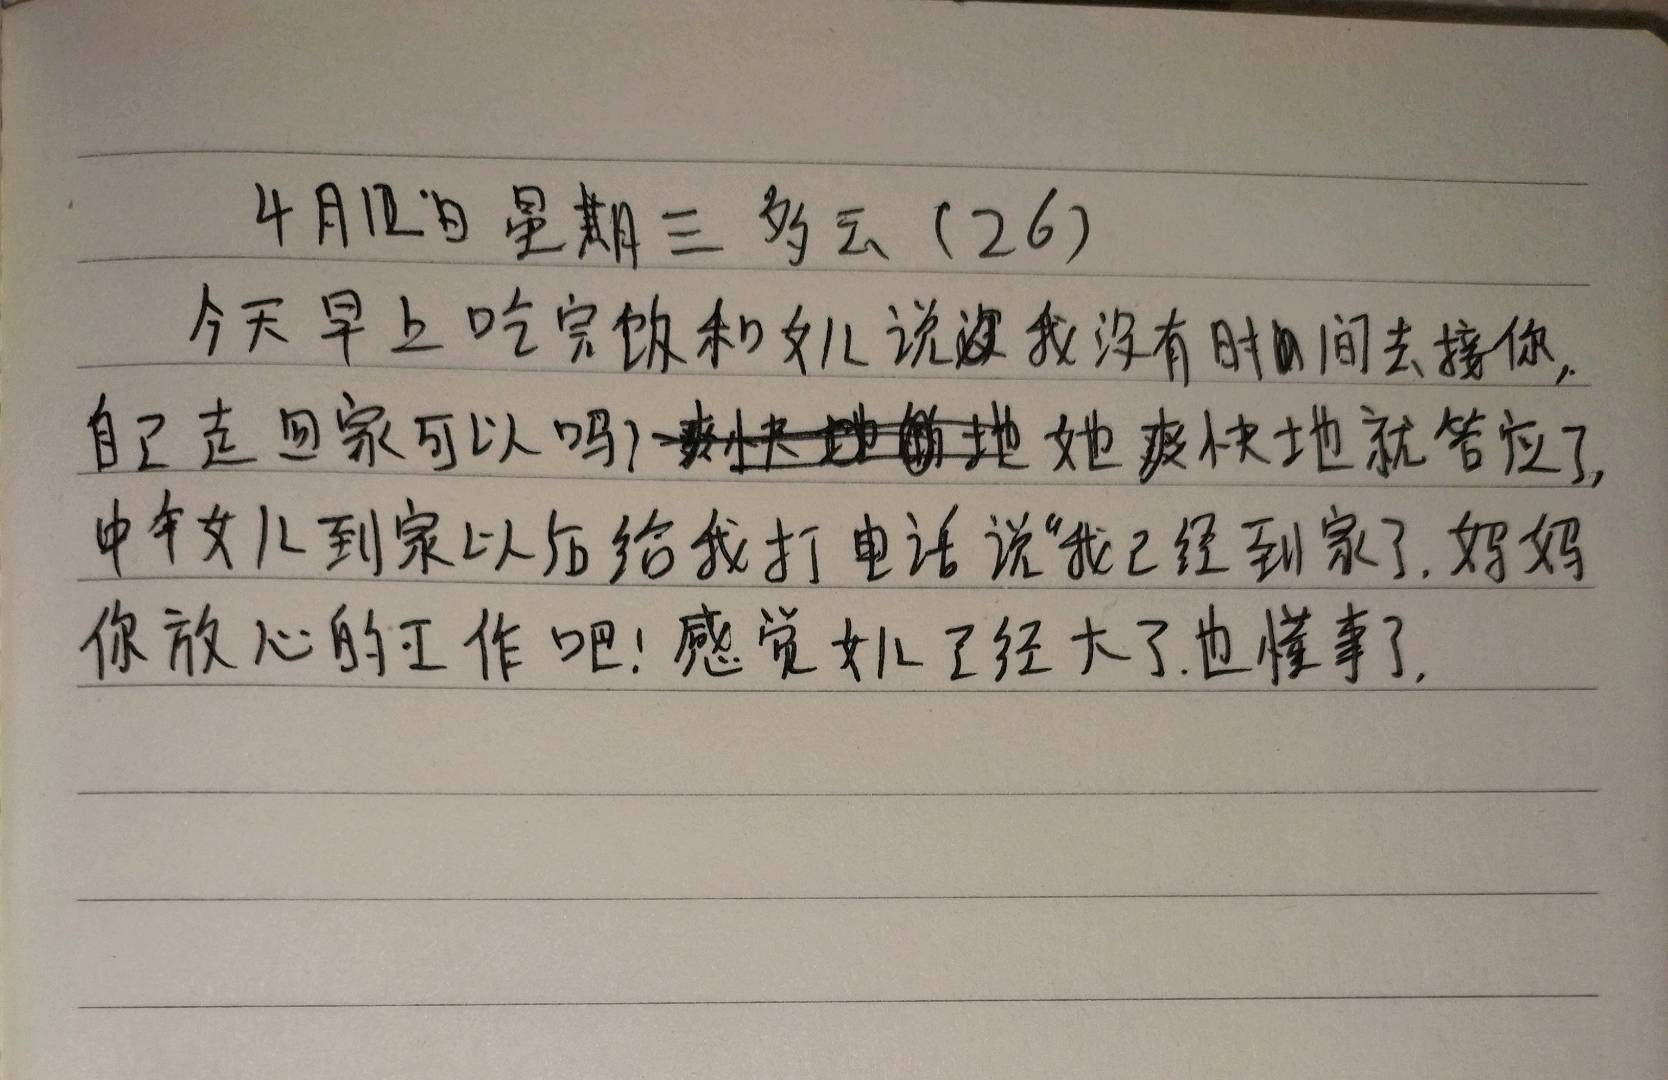 4月12日 星期三 多云（26）
今天早上吃完饭和女儿说我没有时间去接你,
自己走回家可以吗?她爽快地就答应了,
中午女儿到家以后给我打电话说“我已经到家了.妈妈
你放心的工作吧!感觉女儿已经大了.也懂事了.